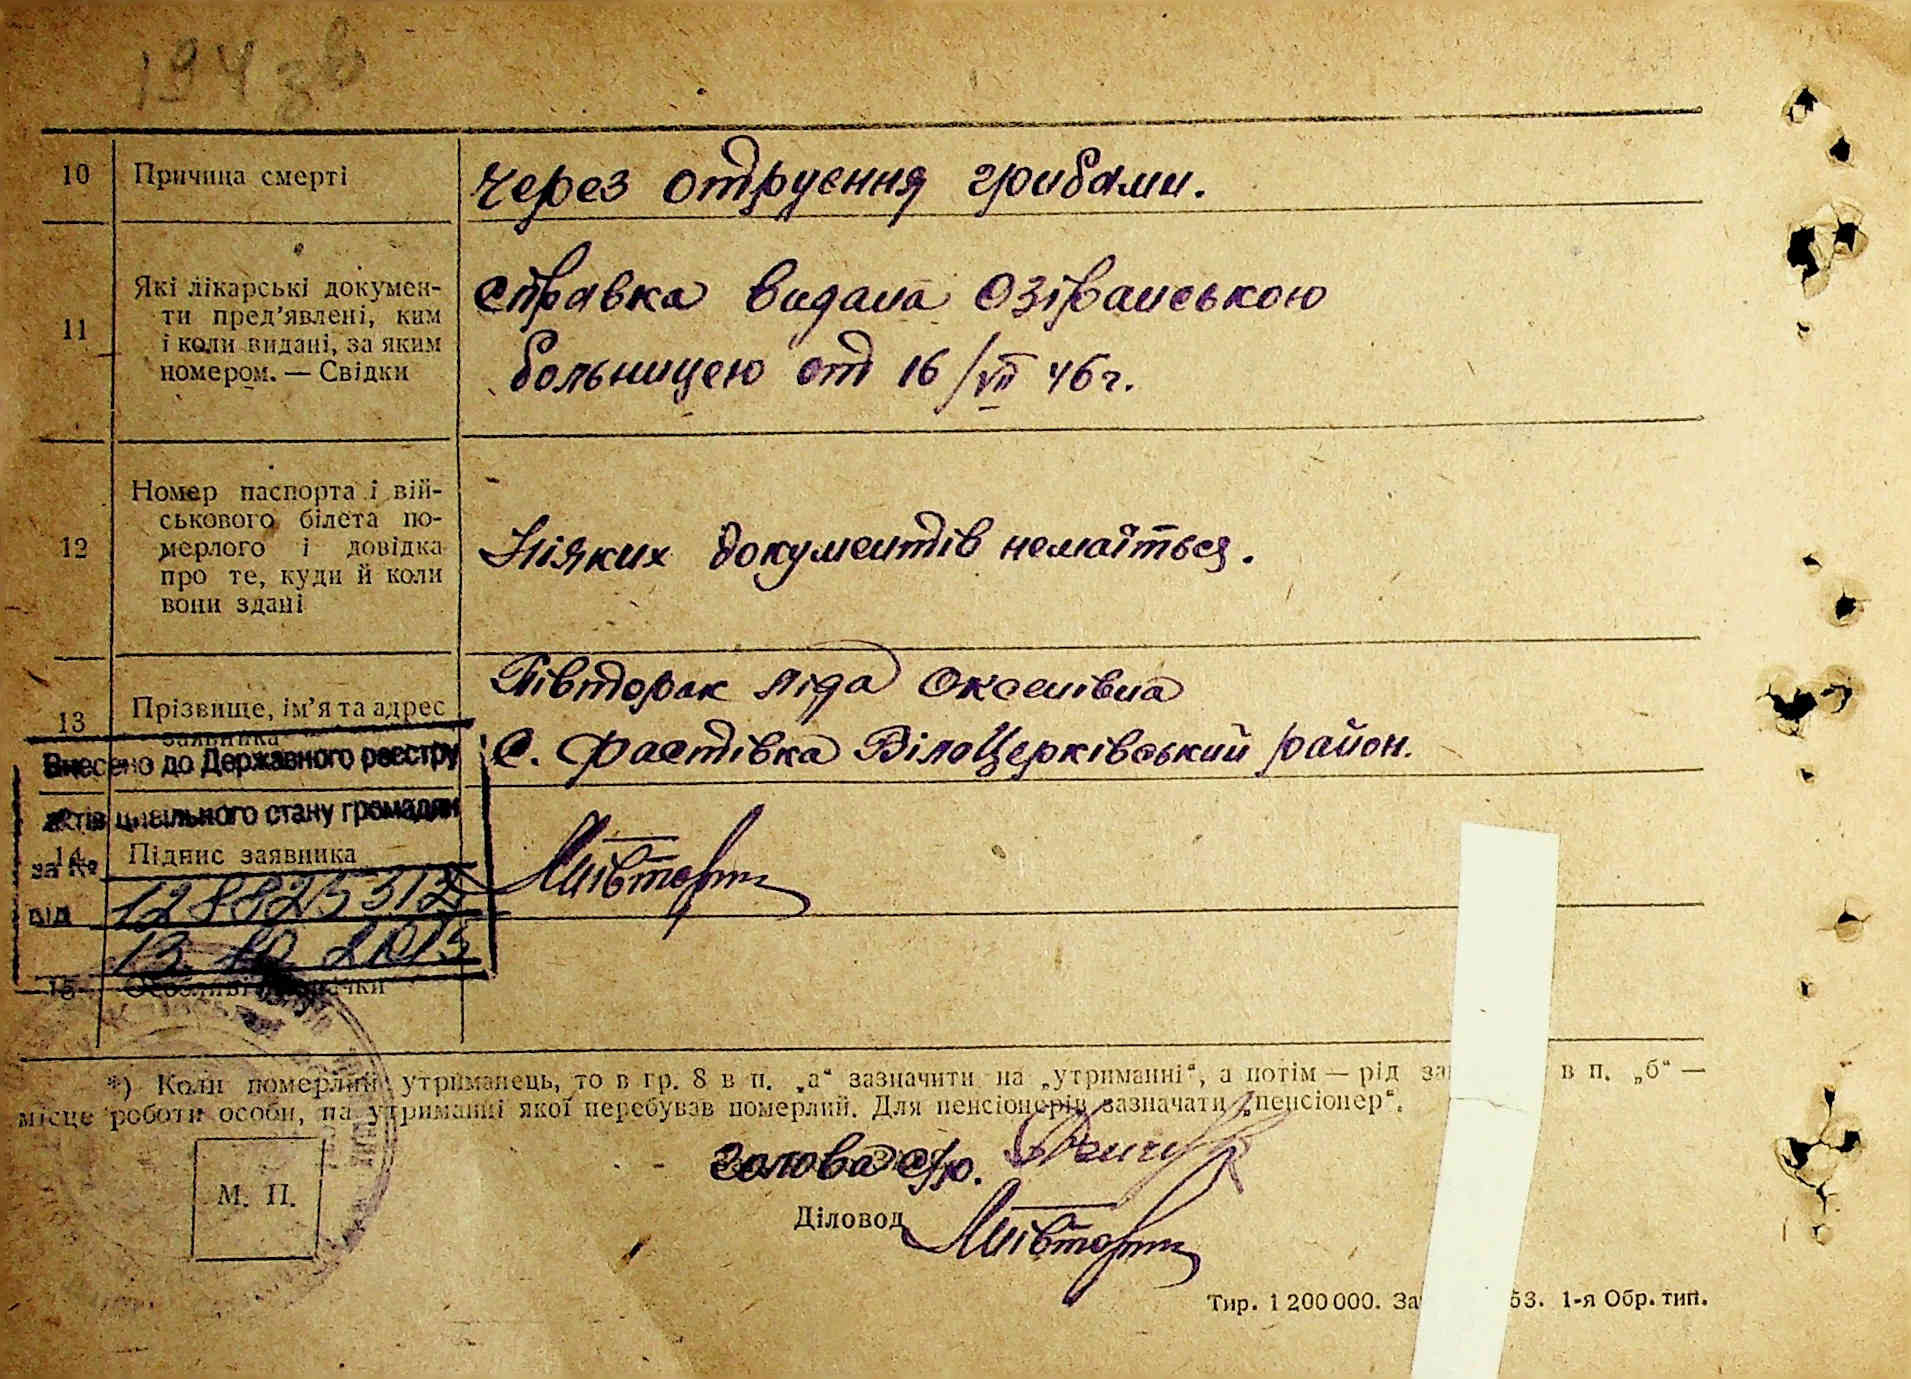 194 зв
10 Причина смерті
через отруєння грибами.
11 Які лікарські докумен-
ти пред'явлені, ким
і коли видані, за яким
номером. — Свідки
справка видана Озірянською
больницею от 16/VII 46 г.
12 Номер паспорта і вій-
ськового білета по-
мерлого і довідка
про те, куди й коли
вони здані
Ніяких документів немаїться.
13 Прізвище, ім'я та адрес
заявника
Півторак Ліда
с. Фастівка БілоЦерківський район.
Внесено до Державного реєстру
актів цивільного стану громадян
за №
від 13.10.2015
14 Підпис заявника
Півторак
15 Особливі
*) Коли померлий утриманець, то в гр. 8 в п. „а“ зазначити на „утриманні“, а потім — рід в п. „б“ —
місце роботи особи, на утриманні якої перебував померлий. Для пенсіонерів зазначати „пенсіонер“.
М. П.
голова с/р.
Діловод Півторак
Тир. 1 200 000. 53. 1-я Обр. тип.